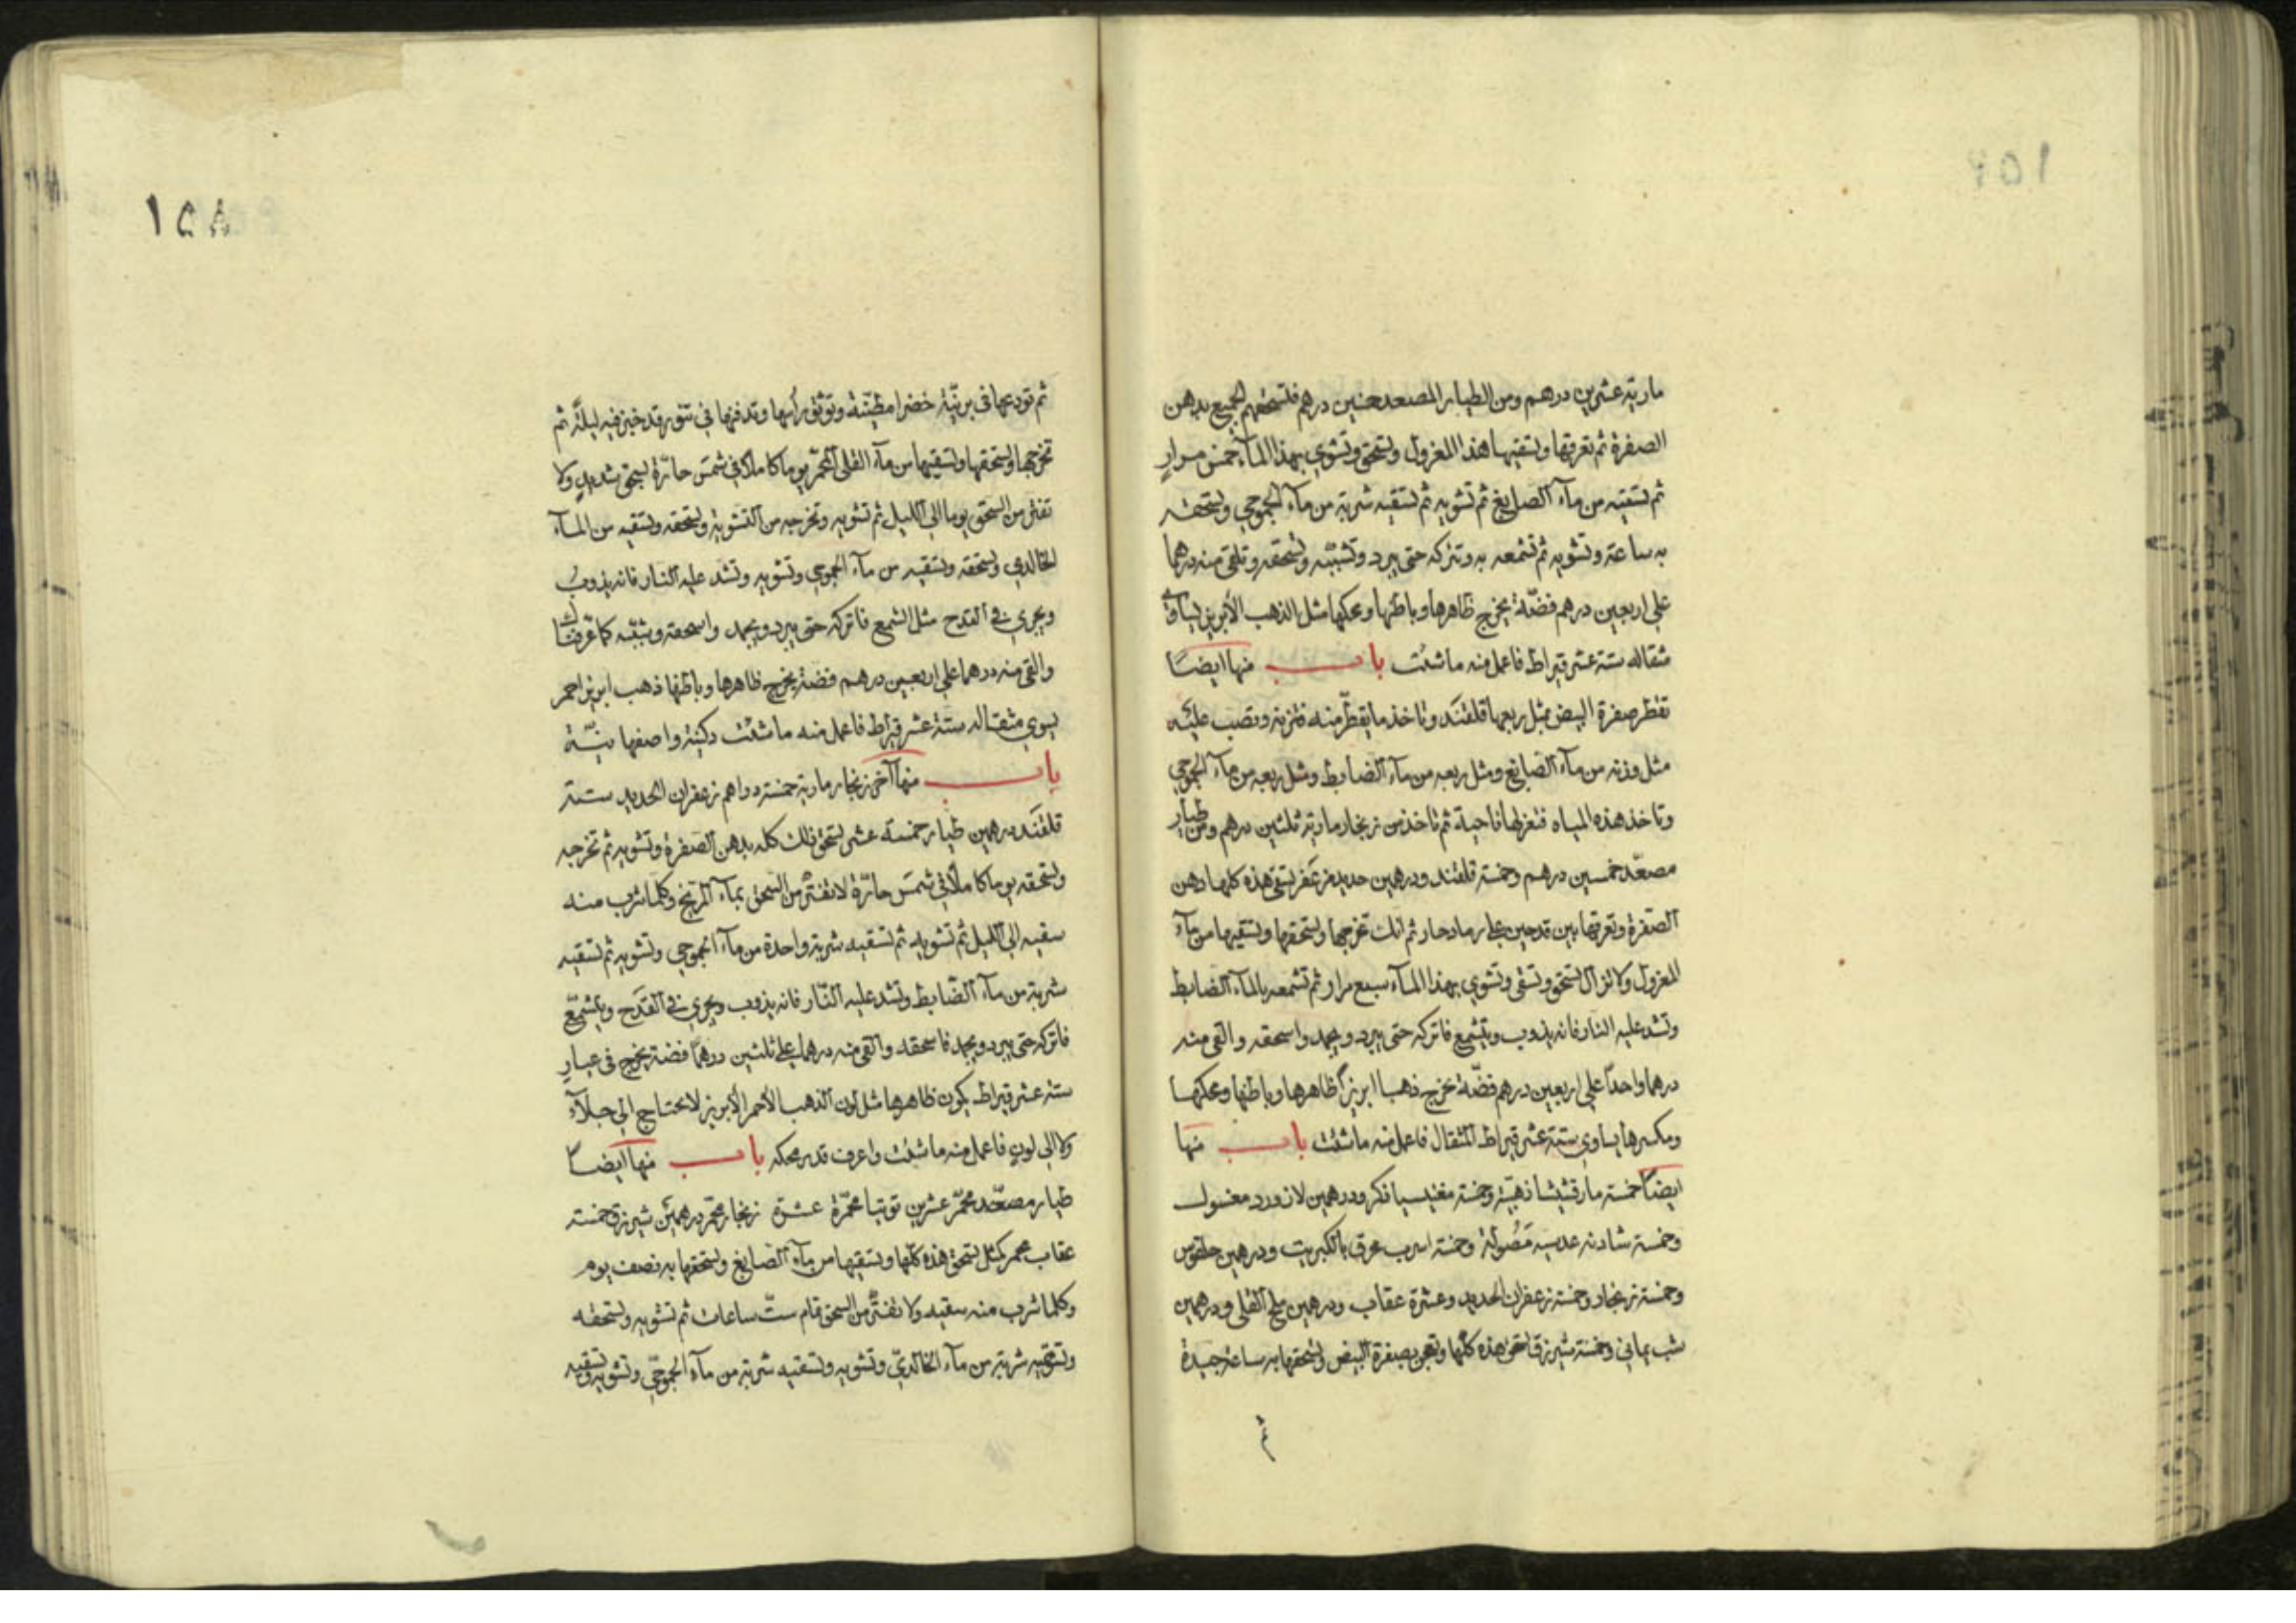 ماريّة عشرين درهم ومن الطيار المصعد خمسين درهم فلتسحقهم الجميع بدهن
الصفرة ثم تعرقها وتسقيها هذا المغزول وتسحق وتشوي بهذا المآء خمس مرارٍ
ثم تسقيه من مآء الصايغ ثم تشويه ثم تسقيه شربة من مآء الجموجي وتسحقه
به ساعة وتشويه ثم تشمعه به وتتركه حتى يبرد وتشبّبه وتسحقه وتلقي منه درهما
علي اربعين درهم فضّة يخرج ظاهرها وباطنها ومحكها مثل الذهب الأبريز يساوي
مثقاله ستة عشر قيراط فاعمل منه ما شئت باب منها ايضًا
تقطر صفرة البيض بمثل ربعها قلقند وتاخذ ما يقطر منه فتزنه وتصب عليه
مثل وزنه من مآء الصايغ ومثل ربعه من مآء الضابط ومثل ربعه من مآء الجموجي
وتاخذ هذه المياه فتعزلها ناحية ثم تاخذ من زنجار مارية ثلثين درهم ومن طيار
مصعّد خمسين درهم وخمسة قلقند ودرهمين حديد مزعفر تسقي هذه كلها دهن
الصّفرة وتعرقها بين قدحين علي رماد حار ثم انك تخرجها وتسحقها وتسقيها من مآء
المغزول ولا تزال تسحق وتسقي وتشوي بهذا المآء سبع مرار ثم تشمعه بالمآء الضابط
وتشد عليه النار فانه يذوب ويتشمع فاتركه حتى يبرد ويجمد واسحقه والقي منه
درهما واحدًا علي اربعين درهم فضّة يخرج ذهبا ابريزًا ظاهرها وباطنها ومحكها
ومكسرها يساوي ستة عشر قيراط المثقال فاعمل منه ما شئت باب منها
ايضًا خمسة مارقشيشا ذهبيّة وخمسة مغنيسيا ذكر ودرهمين لازورد مغسول
وخمسة شادنه عدسيه مَصُولة وخمسة اسرب محرق بالكبريت ودرهمين حلقوس
وخمسة زنجار وخمسة زعفران الحديد وعشرة عقاب ودرهمين ملح القلي ودرهمين
شب يماني وخمسة شيرزق تسحق هذه كلّها وتعجن بصفرة البيض وتسحقها به ساعة جيدة
ثم
١٥٨
ثم تودعها في برنيّة خضرا مطيّنة وتوثق رأسها وتدفنها في تنّور قد خبز فيه ليلةً ثم
تخرجها وتسحقها وتسقيها من مآء القلي المحمّر يوما كاملا في شمس حارّة بسحق شديدٍ ولا
تفتر من السحق يوما الي الليل ثم تشويه وتخرجه من التشوية وتسحقه وتسقيه من المآء
الخالدي وتسحقه وتسقيه من مآء الجموجي وتشويه وتشد عليه النار فانه يذوبُ
ويجري في القدح مثل الشمع فاتركه حتى يبرد ويجمد واسحقه وشبّبه كما عرّفناك
والقي منه درهما علي اربعين درهم فضة يخرج ظاهرها وباطنها ذهب ابريز احمر
يسوي مثقاله ستة عشر قيراط فاعمل منه ما شئت
باب منها آخر زنجار مارية خمسة دراهم زعفران الحديد ستة
قلقند درهمين طيار خمسة عشر تسحق ذلك كله بدهن الصّفرة وتشويه ثم تخرجه
وتسحقه يوما كاملا في شمس حارّة لا تفتر من السحق بمآء المريخ وكلما شرب منه
سقيه الي الليل ثم تشويه ثم تسقيه شربة واحدة من مآء الجموجي وتشويه ثم تسقيه
شربة من مآء الضّابط وتشد عليه النّار فانه يذوب ويجري في القدَح ويتشمّع
فاتركه حتى يبرد ويجمد فاسحقه والقي منه درهما علي ثلثين درهمًا فضة يخرج في عيارٍ
ستة عشر قيراط يكون ظاهرها مثل لون الذهب الأحمر الأبريز لا يحتاج الي جلآء
ولا الي لون فاعمل منه ما شئت واعرف قدر محكه باب منها ايضًا
طيار مصعّد محمّر عشرين توتيا محمّرة عشرة زنجار محمّر درهمين شيرزق خمسة
عقاب محمر كمثل تسحق هذه كلّها وتسقيها من مآء الصّايغ وتسحقها به نصف يوم
وكلما شرب منه سقيه ولا تفتر من السحق تمام ستّ ساعات ثم تشويه وتسحقه
وتسقيه شربة من مآء الخالديّ وتشويه وتسقيه شربة من مآء الجموجيّ وتشويه وتسقيه